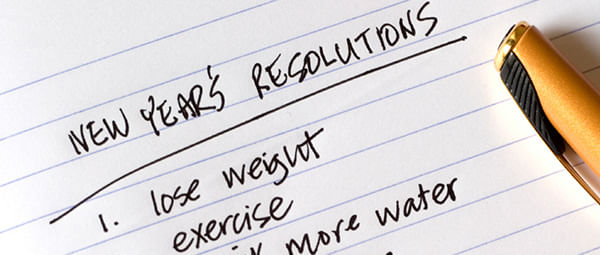 NEW YEAR'S RESOLUTIONS
1. lose weight
exercise
more water